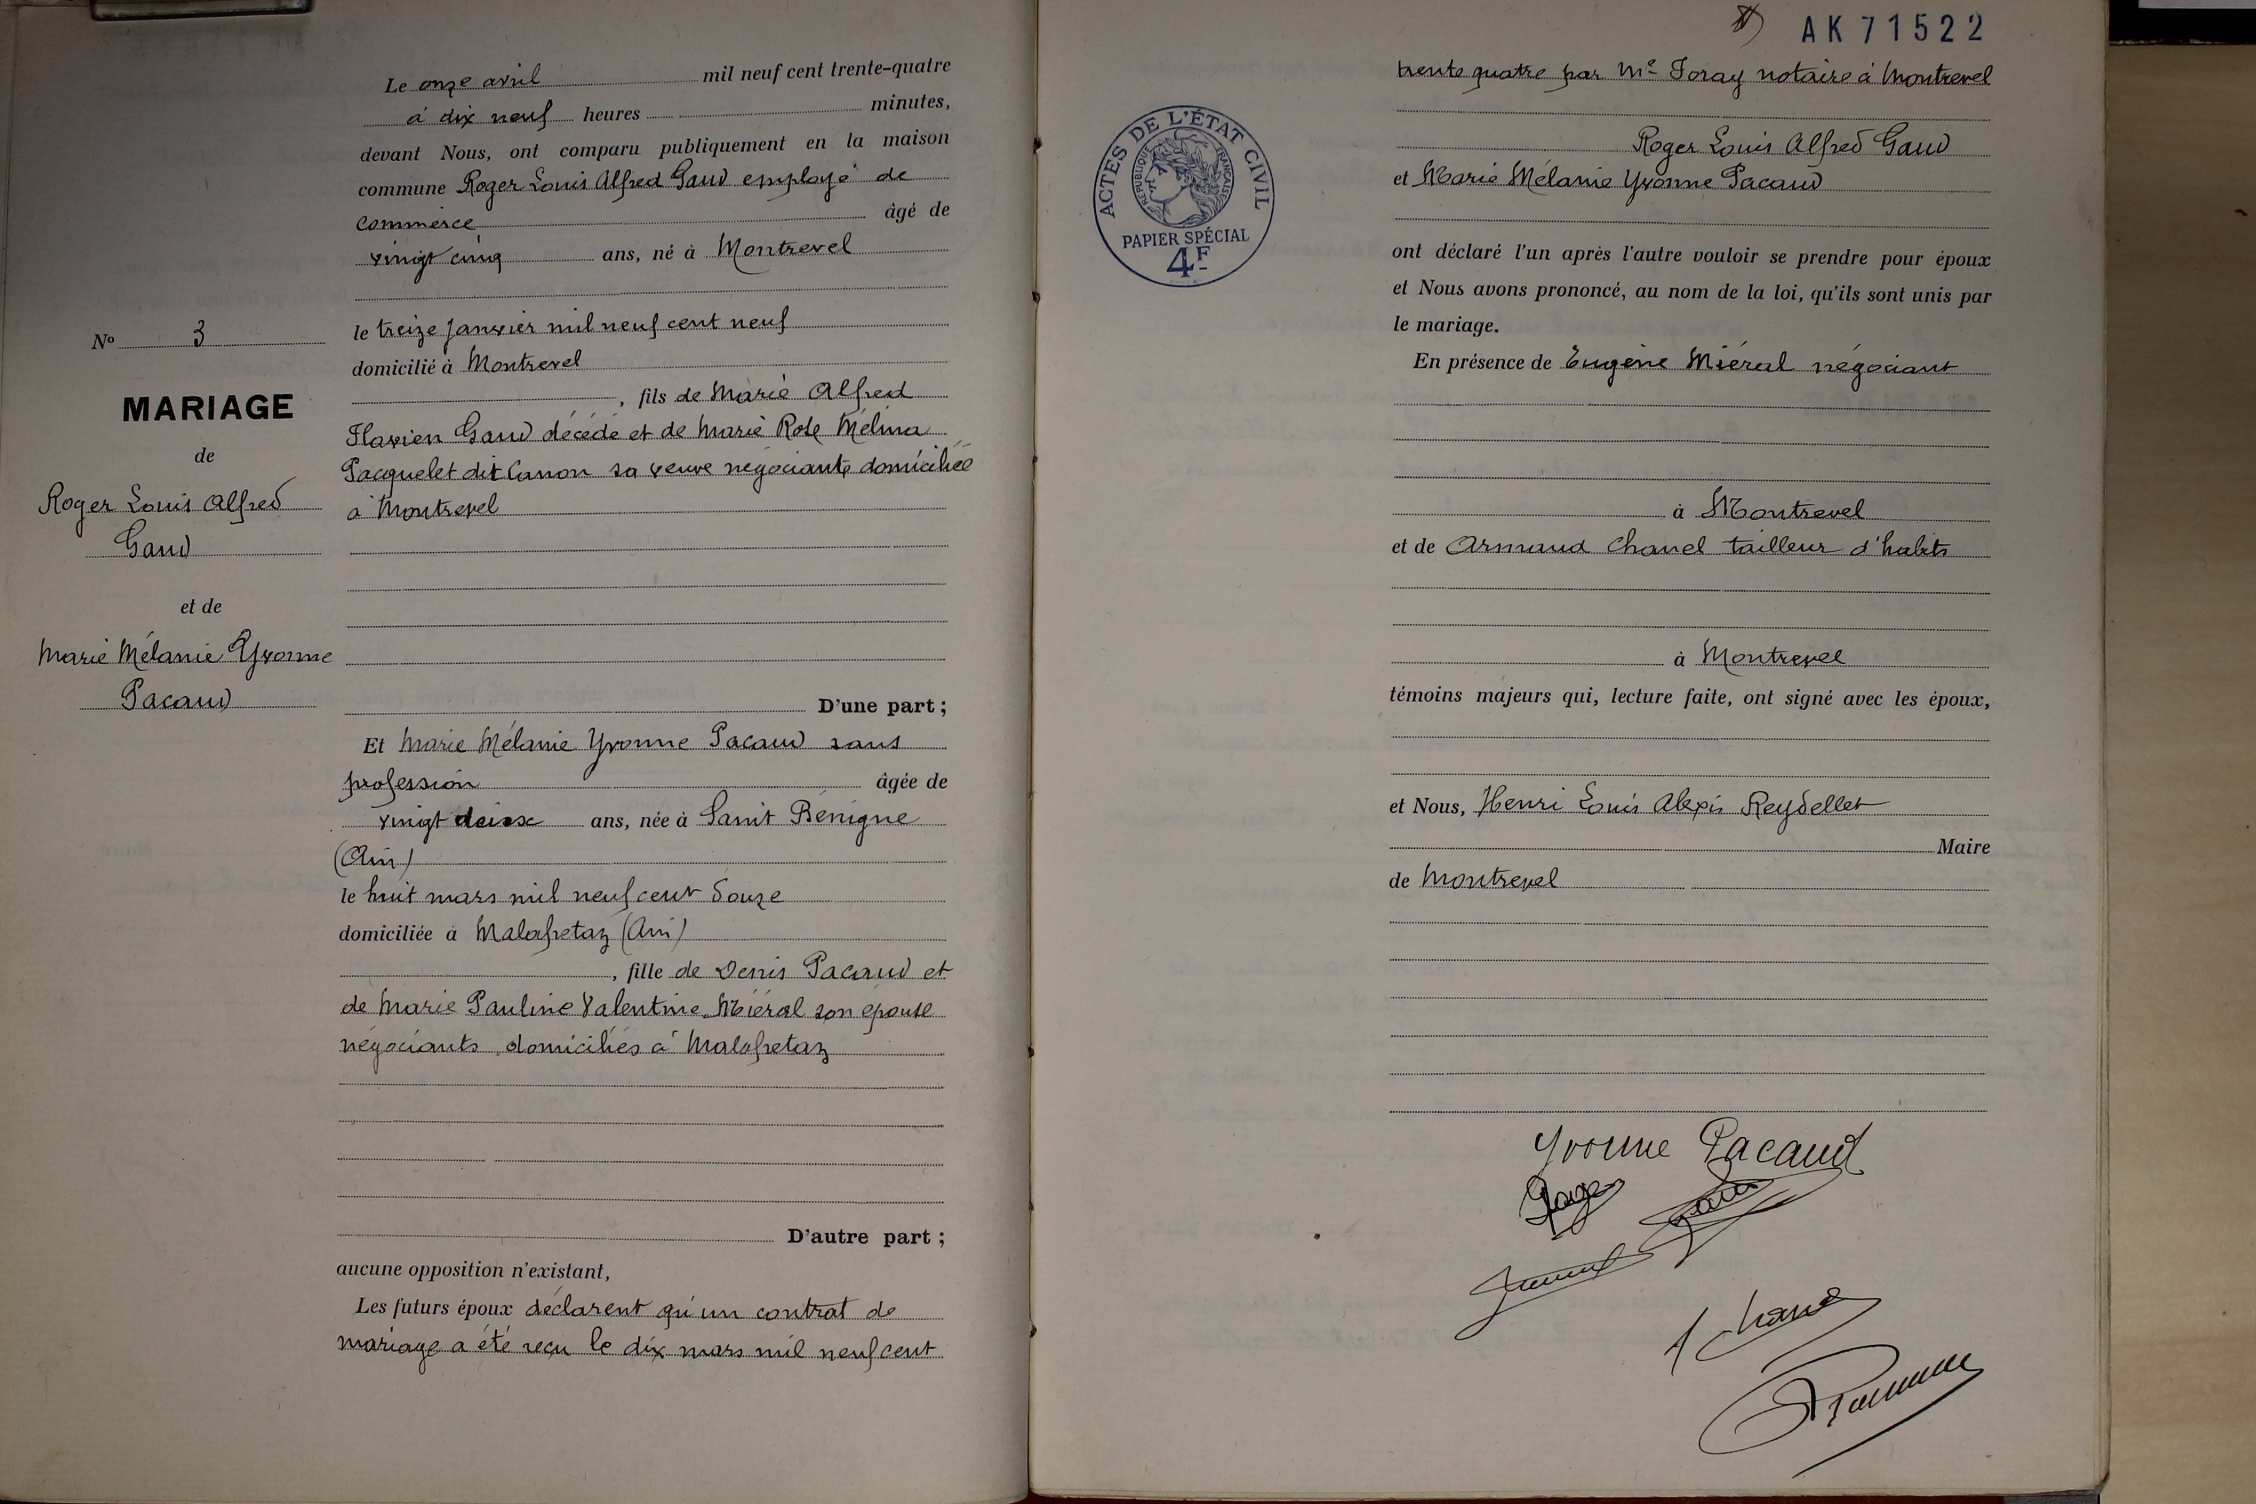 Le onze avril mil neuf cent trente-quatre
à dix neuf heures minutes,
devant Nous, ont comparu publiquement en la maison
commune Roger Louis Alfred Gaud employé de
commerce âgé de
vingt cinq ans, né à Montrevel
le treize janvier mil neuf cent neuf
domicilié à Montrevel
, fils de Marie Alfred
Flavien Gaud décédé et de Marie Rose Mélina
Pacquelet dit Canon sa veuve négociante domiciliée
à Montrevel
D'une part ;
Et Marie Mélanie Yvonne Pacaud sans
profession âgée de
vingt deux ans, née à Saint Bénigne
(Ain)
le huit mars mil neuf cent douze
domiciliée à Malafretaz (Ain)
, fille de Denis Pacaud et
de Marie Pauline Valentine Miéral son épouse
négociants domiciliés à Malafretaz
D'autre part ;
aucune opposition n'existant,
Les futurs époux déclarent qu'un contrat de
mariage a été reçu le dix mars mil neuf cent
No 3
MARIAGE
de
Roger Louis Alfred
Gaud
et de
Marie Mélanie Yvonne
Pacaud
AK 71522
trente quatre par Me Foray notaire à Montrevel
Roger Louis Alfred Gaud
et Marie Mélanie Yvonne Pacaud
ont déclaré l'un après l'autre vouloir se prendre pour époux
et Nous avons prononcé, au nom de la loi, qu'ils sont unis par
le mariage.
En présence de Eugène Miéral négociant
à Montrevel
et de Armand Chanel tailleur d'habits
à Montrevel
témoins majeurs qui, lecture faite, ont signé avec les époux,
et Nous, Henri Louis Alexis Reydellet
Maire
de Montrevel
ACTES DE L'ÉTAT CIVIL
RÉPUBLIQUE FRANÇAISE
PAPIER SPÉCIAL
4F
Yvonne Pacaud